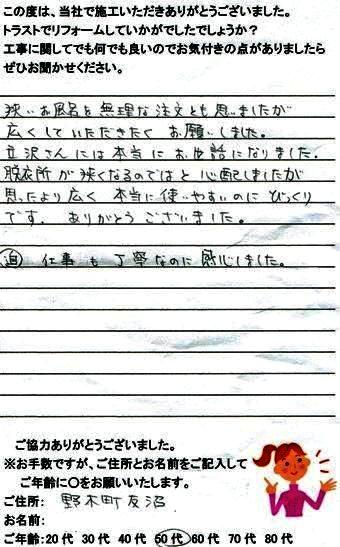 この度は、当社で施工いただきありがとうございました。
トラストでリフォームしていかがでしたでしょうか？
工事に関してでも何でも良いのでお気付きの点がありましたら
ぜひお聞かせください。
狭いお風呂を無理な注文とも思いましたが
広くしていただきたく お願いしました。
立沢さんには本当に お世話になりました。
脱衣所が狭くなるのではと心配しましたが
思ったより広く 本当に使いやすいのに びっくり
です. ありがとう ございました。
追 仕事も丁寧なのに 感心しました。
ご協力ありがとうございました。
※お手数ですが、ご住所とお名前をご記入して
ご年齢に○をお願いいたします。
ご住所: 野木町友沼
お名前:
ご年齢:20代 30代 40代 50代 60代 70代 80代